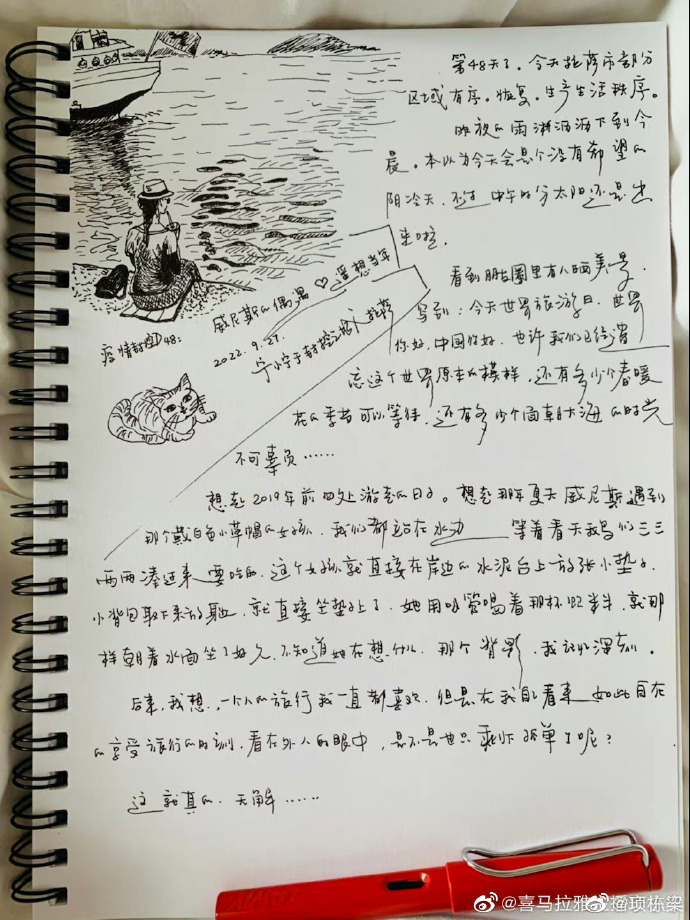 第48天了。今天拉萨市部分
区域有序。恢复。生产生活秩序。
昨夜的雨淅沥沥下到今
晨。本以为今天会是个没有希望的
阴冷天，不过中午时分太阳还是出
来啦。
看到朋友圈里有人晒美景，
写到：今天世界旅游日，世界
你好，中国你好，也许我们已经遗
忘这个世界原本的模样，还有多少个春暖
花的季节可以等待，还有多少个面朝大海的时光
不可辜负……
威尼斯的偶遇
遥想当年
2022.9.27.
宁小宁于封控之城拉萨
疫情封控48：
想起2019年前四处游走的日子。想起那年夏天威尼斯遇到
那个戴白色小草帽的女孩，我们都站在水边 等着看天鹅鸟们三三
两两凑过来要吃的，这个女孩就直接在岸边的水泥台上放张小垫子，
小背包取下来放身边，就直接坐垫子上了，她用吸管喝着那杯果汁，就那
样朝着水面坐了好久，不知道她在想什么，那个背影，我记忆深刻。
后来，我想，一个人的旅行我一直都喜欢，但是在我自己看来如此自在
的享受旅行的时刻，看在外人的眼中，是不是也只剩下孤单了呢？
这就真的，无解……
@喜马拉雅 播顶栋梁